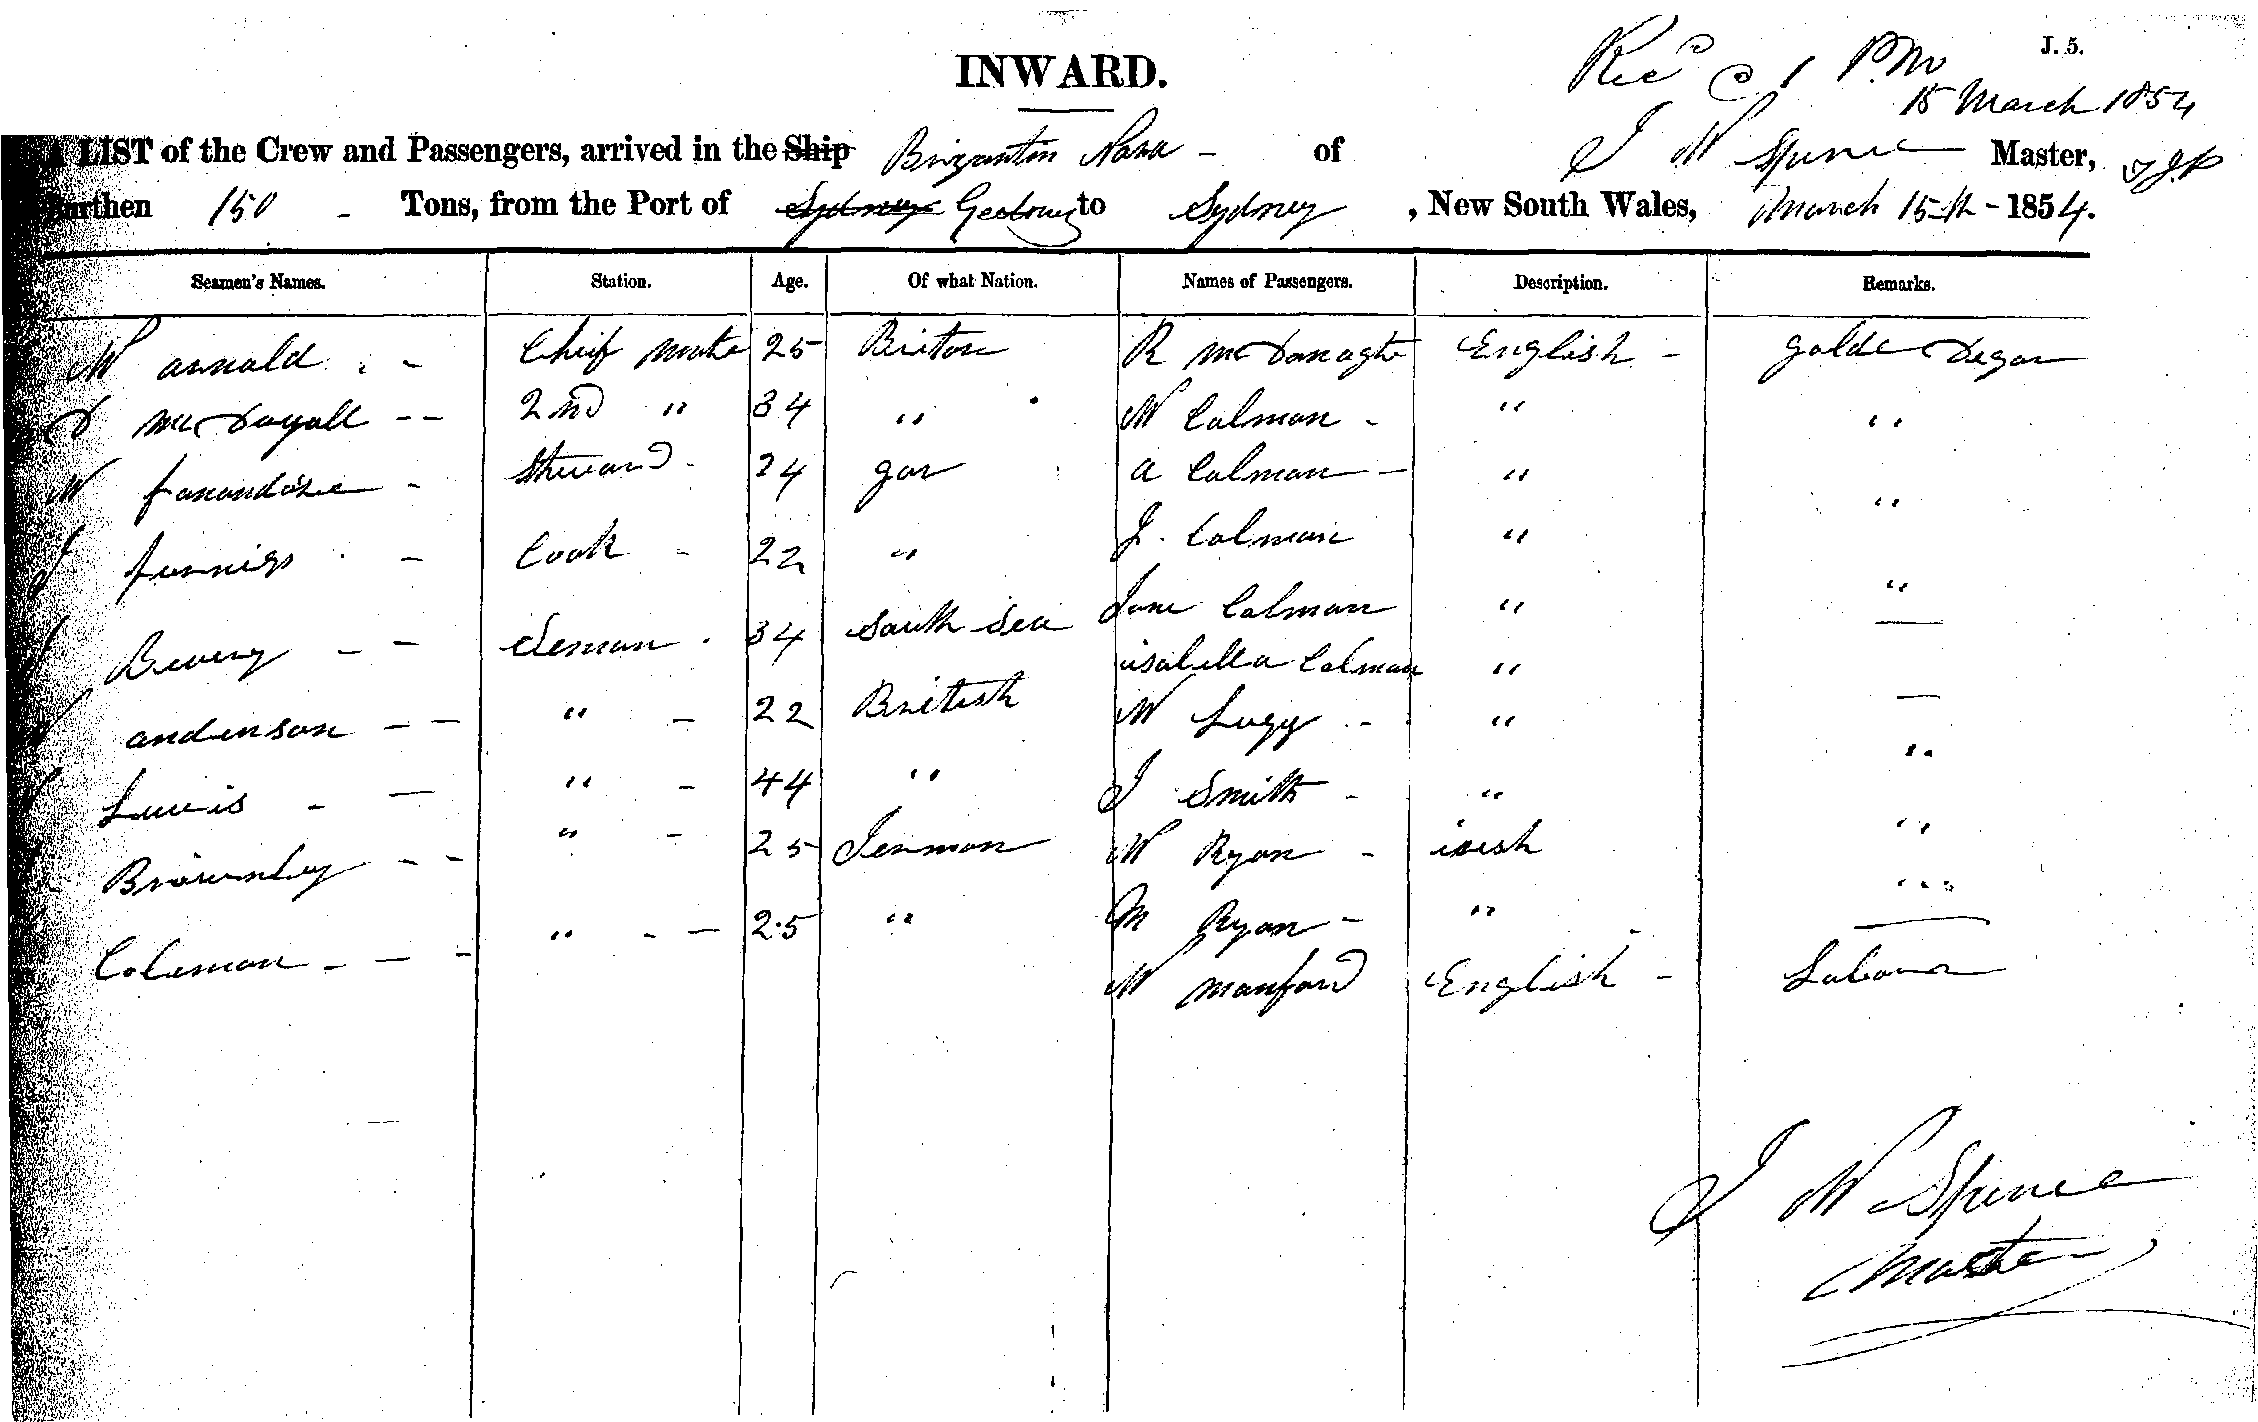 J. 5.
INWARD.
Recd 1 P.M
15 March 1854
A LIST of the Crew and Passengers, arrived in the Ship Brigantin Nara - of J W Spence Master,
Burthen 150 - Tons, from the Port of Sydney Geelong to Sydney, New South Wales, March 15th - 1854.
Seamen's Names. Station. Age. Of what Nation. Names of Passengers. Description. Remarks.
W arnold - - Chief mate 25 Briton R McDonagh English - golde Degar
D McDogall - - 2nd " 34 " W Colman - " "
W - Steward - 24 gar a Colman - " "
J Jennigs - Cook - 22 " J. Colman " "
Bevery - - Seman 34 South Sea Jane Colman " —
anderson - - " - 22 British isabella Colman " —
Lewis - - " - 44 " W Lugg - " "
Brownley - - " - 25 Jermon J Smith - " "
Coleman - - - " - - 25 " W Ryan - irish "
M Ryan - " —
W manford English - Labour
J W Spence
Master